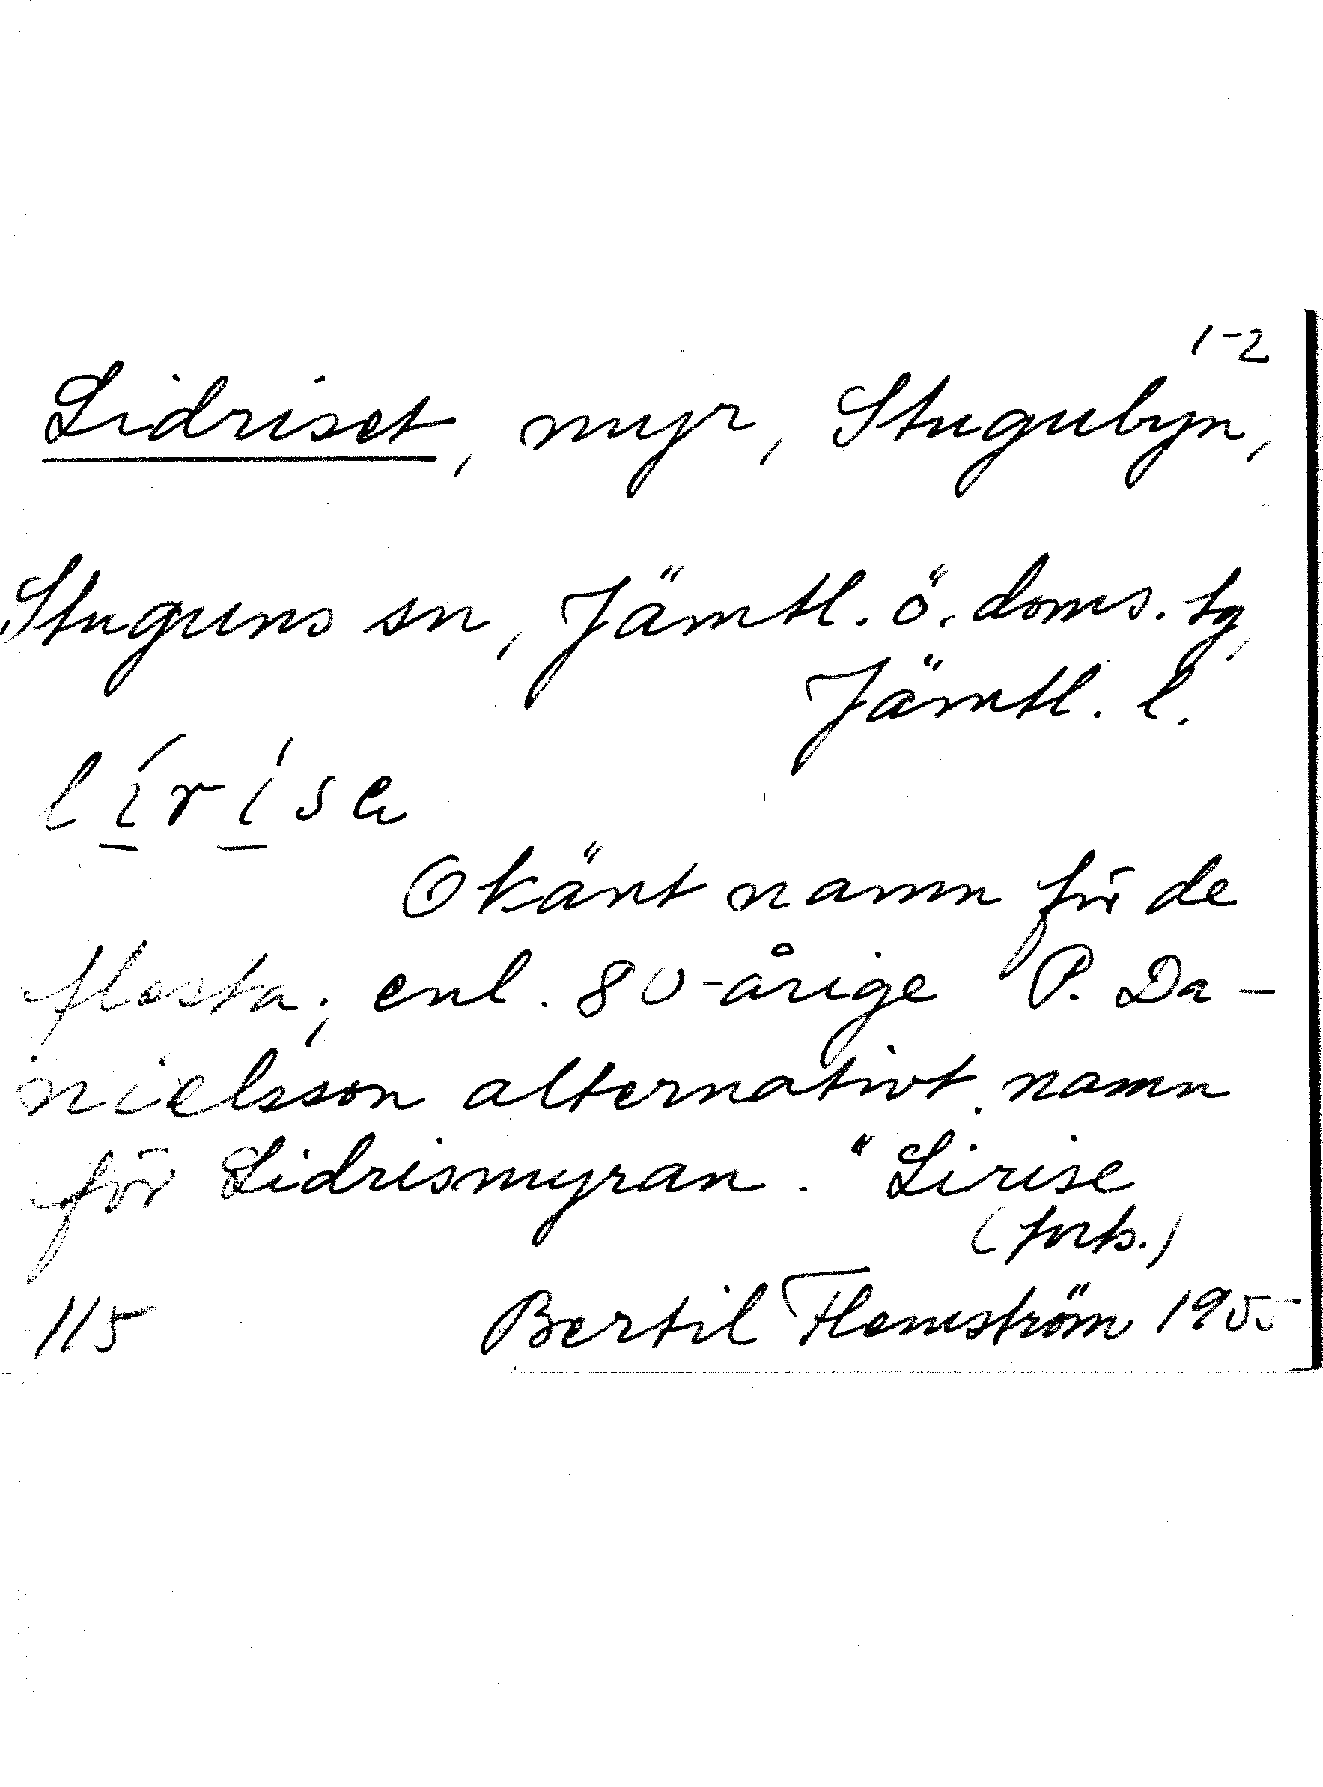 1-2
Lidriset, myr, Stugubyn,
Stuguns sn, Jämtl. ö. doms. tg,
Jämtl. l.
líríse
Okänt namn för de
flesta; enl. 80-årige P. Da-
nielsson alternativt namn
för Lidrismyran. "Lirise
(forts.)
115 Bertil Flemström 1955